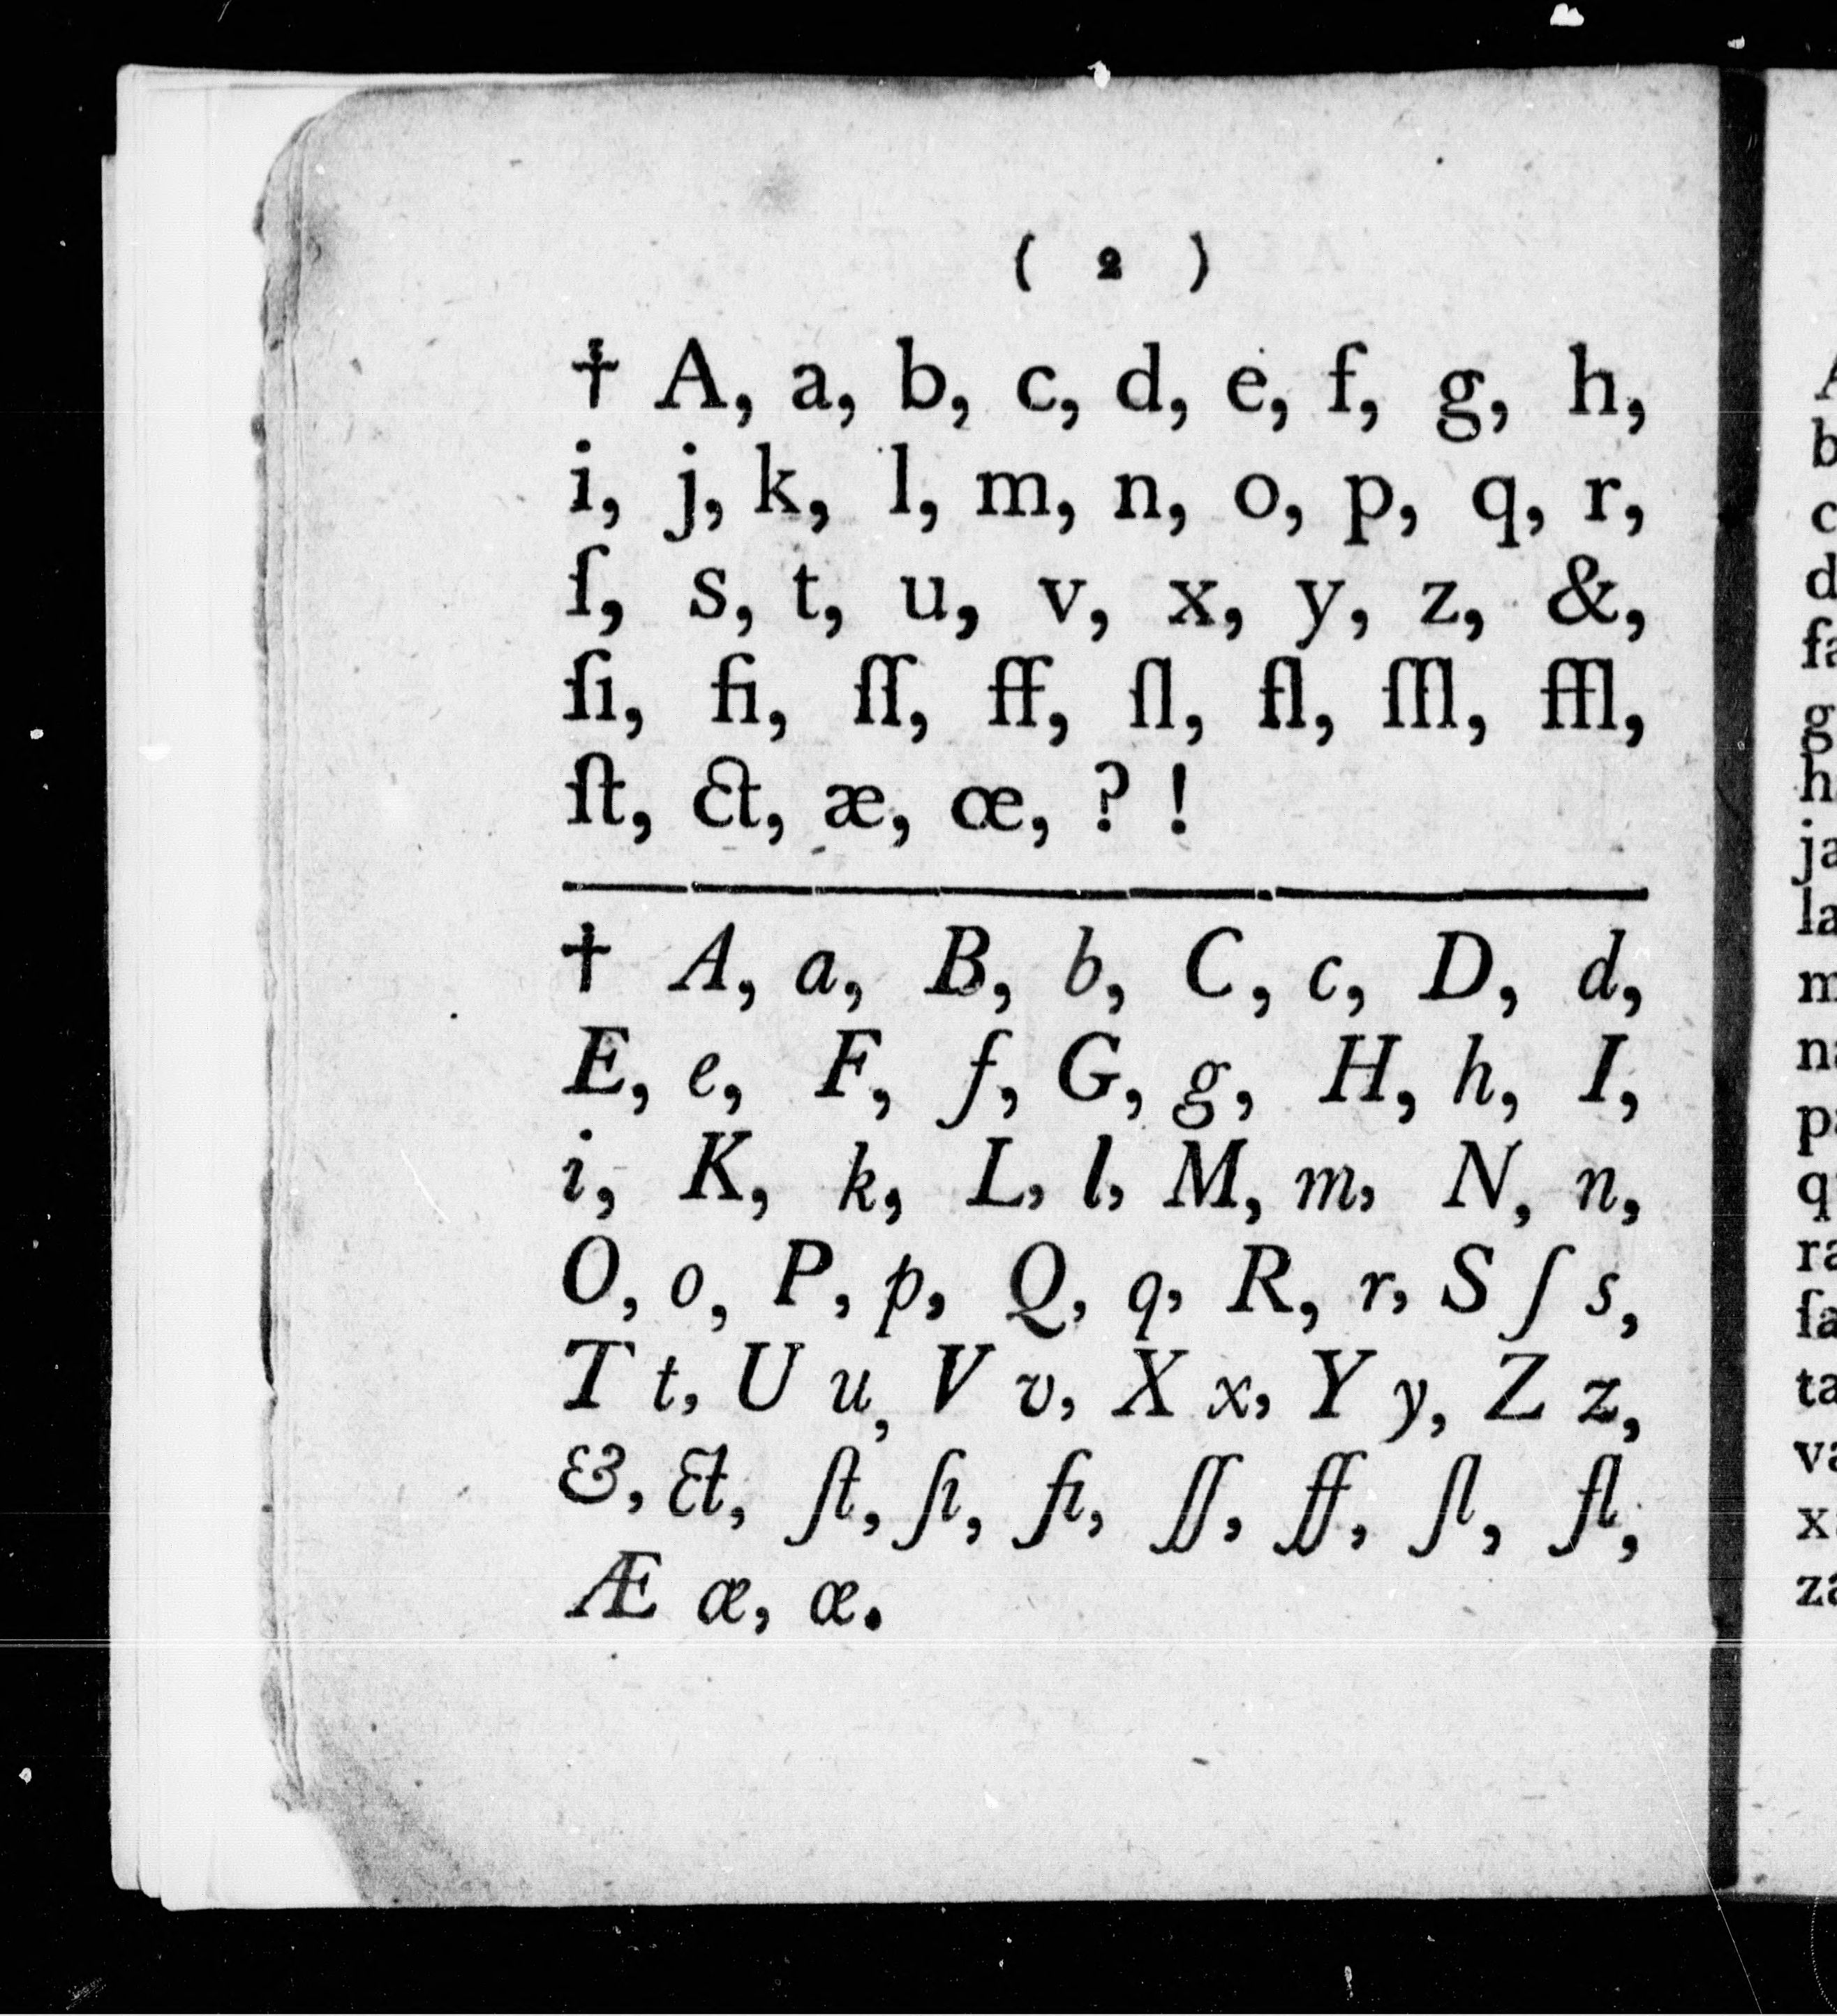 ( 2 )
† A, a, b, c, d, e, f, g, h,
i, j, k, l, m, n, o, p, q, r,
ſ, s, t, u, v, x, y, z, &,
ſi, fi, ſſ, ff, ſl, fl, ſſl, ffl,
ſt, ct, æ, œ, ? !
† A, a, B, b, C, c, D, d,
E, e, F, f, G, g, H, h, I,
i, K, k, L, l, M, m, N, n,
O, o, P, p, Q, q, R, r, S ſ s,
T t, U u, V v, X x, Y y, Z z,
&, ct, ſt, ſi, fi, ſſ, ff, ſl, fl,
Æ æ, œ.
b
c
d
fa
g
h
ja
la
m
na
pa
q
ra
ſa
ta
va
x
za